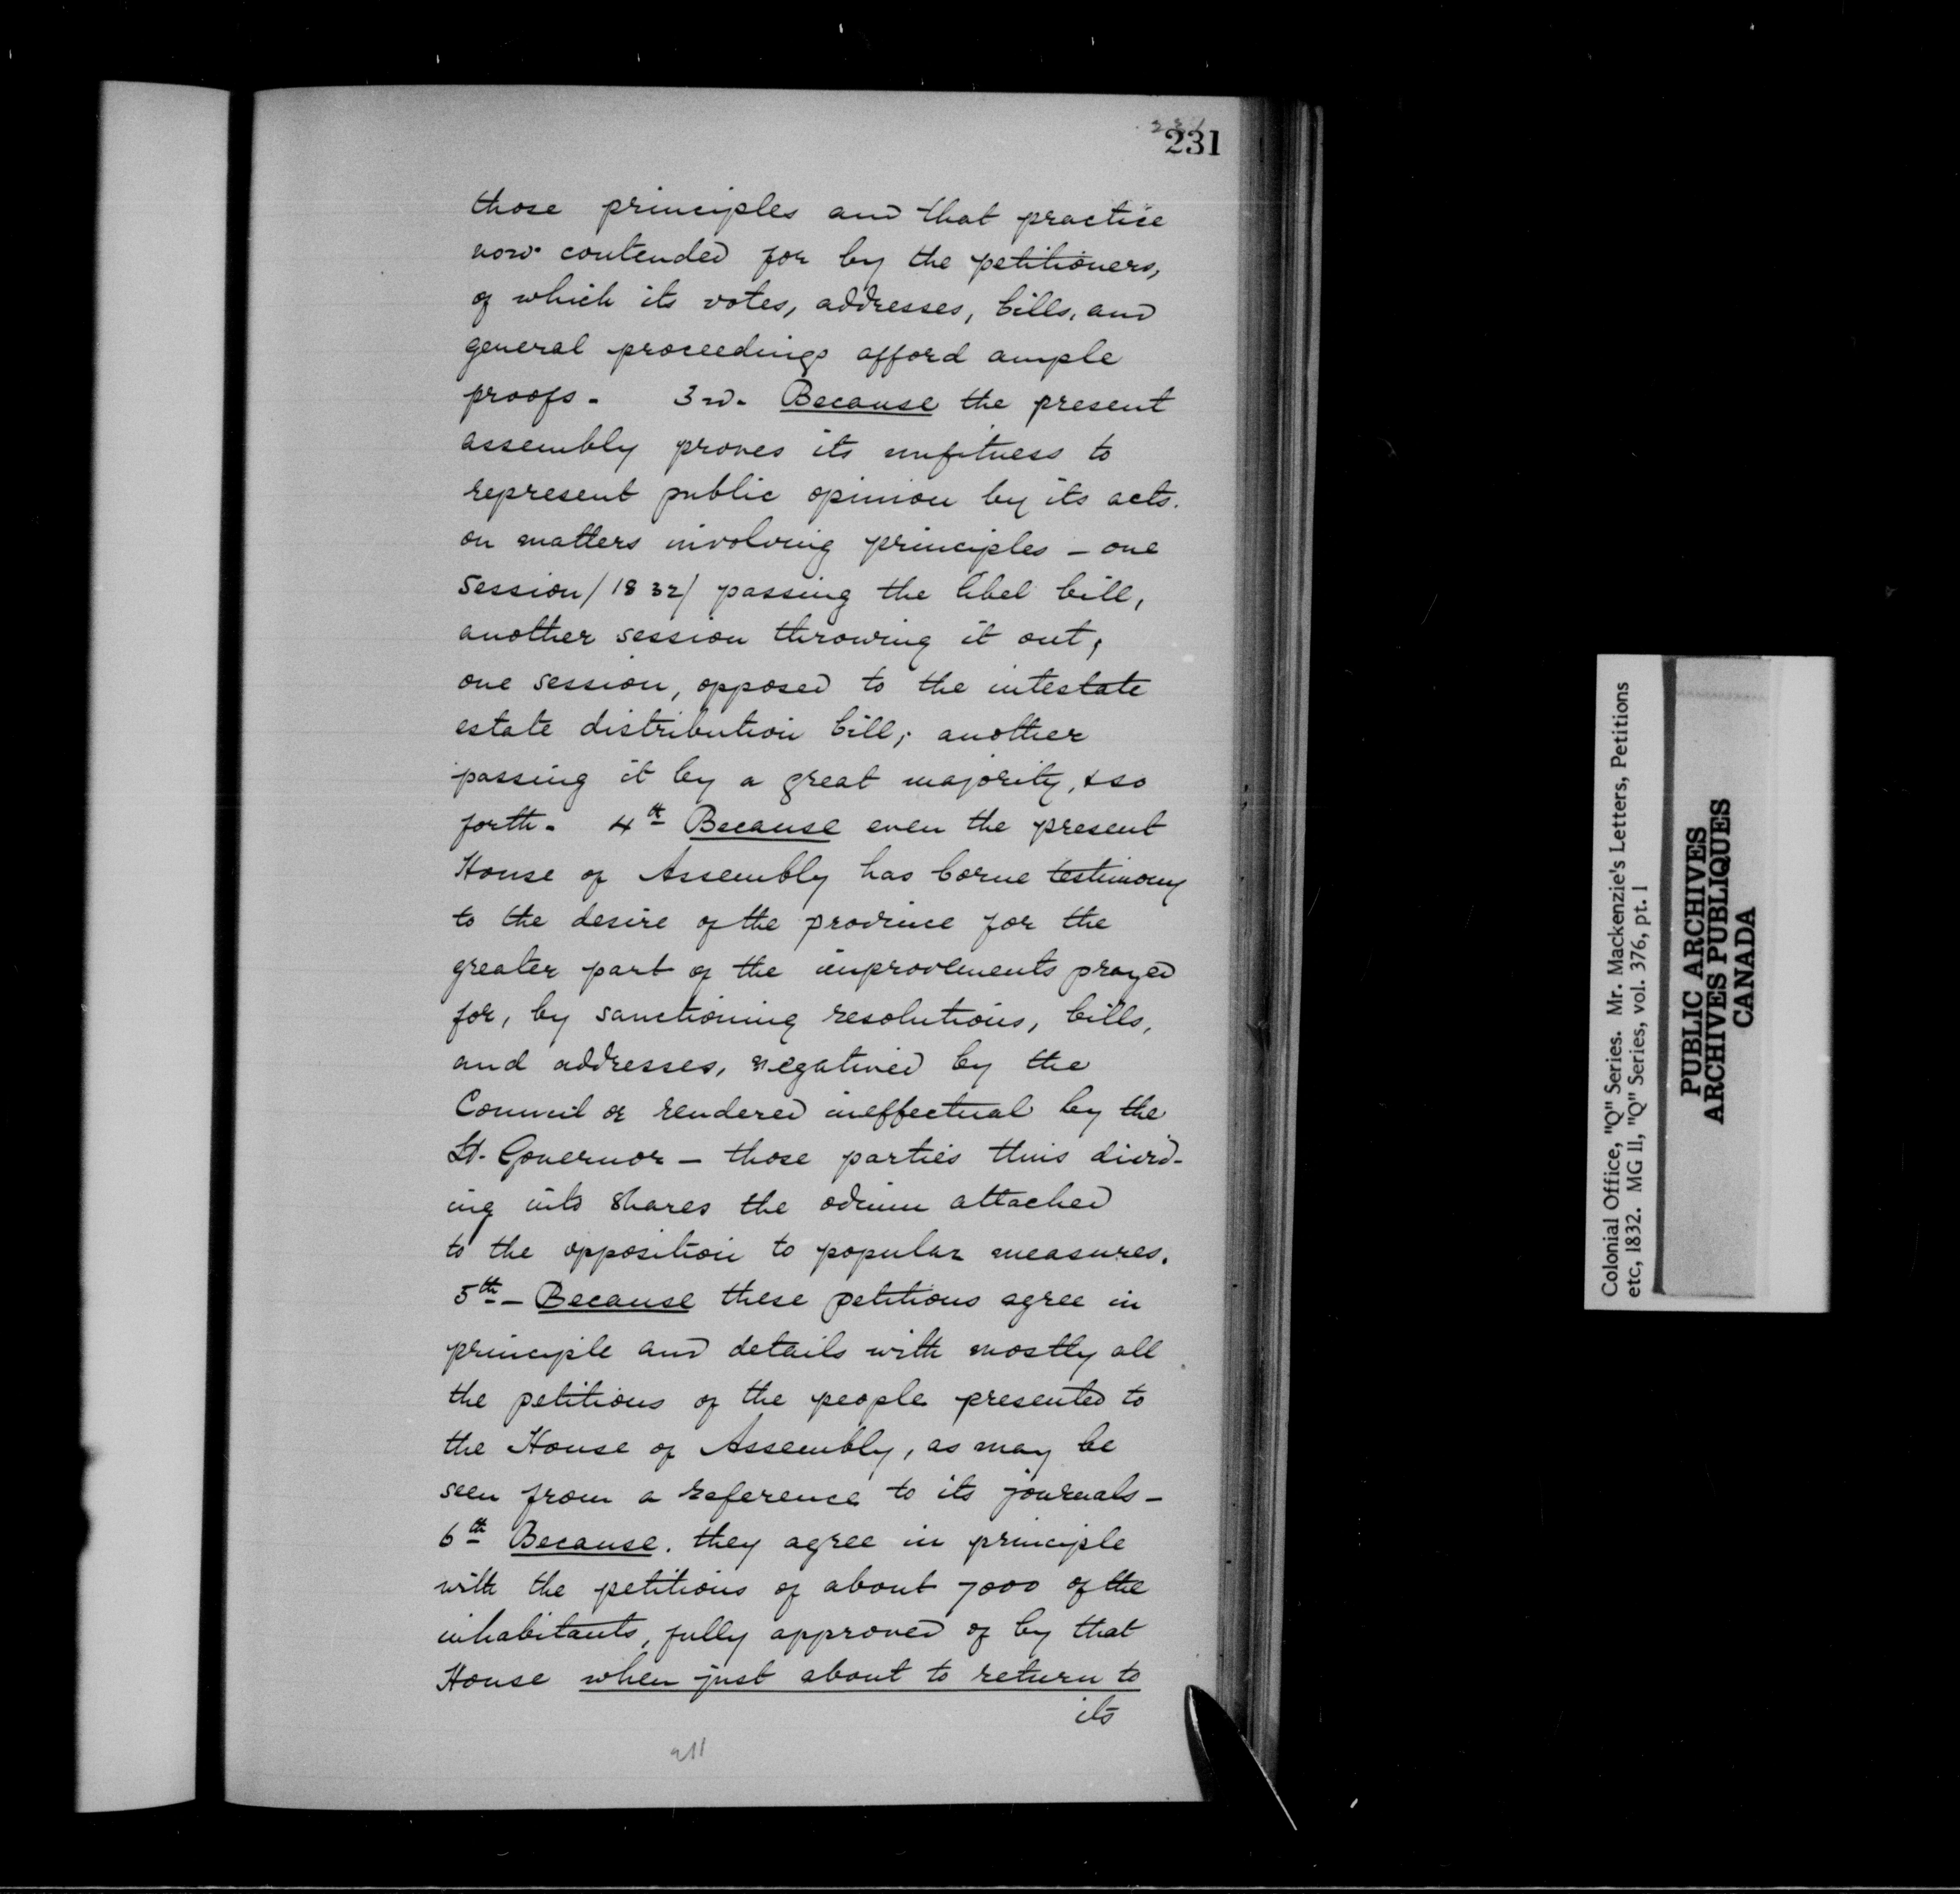 231
231
those principles and that practice
now contended for by the petitioners,
of which its votes, addresses, bills, and
general proceedings afford ample
proofs. 3rd. Because the present
assembly proves its unfitness to
represent public opinion by its acts.
on matters involving principles - one
session /1832/ passing the libel bill,
another session throwing it out;
one session, opposed to the intestate
estate distribution bill; another
passing it by a great majority, & so
forth. 4th Because even the present
House of Assembly has borne testimony
to the desire of the province for the
greater part of the improvements prayed
for, by sanctioning resolutions, bills,
and addresses, negatived by the
Council or rendered ineffectual by the
Lt. Governor - those parties thus divid-
ing into shares the odium attached
to the opposition to popular measures.
5th - Because these petitions agree in
principle and details with mostly all
the petitions of the people presented to
the House of Assembly, as may be
seen from a reference to its journals -
6th Because. they agree in principle
with the petitions of about 7000 of the
inhabitants, fully approved of by that
House when just about to return to
its
Colonial Office, "Q" Series. Mr. Mackenzie's Letters, Petitions
etc, 1832. MG 11, "Q" Series, vol. 376, pt. 1
PUBLIC ARCHIVES
ARCHIVES PUBLIQUES
CANADA